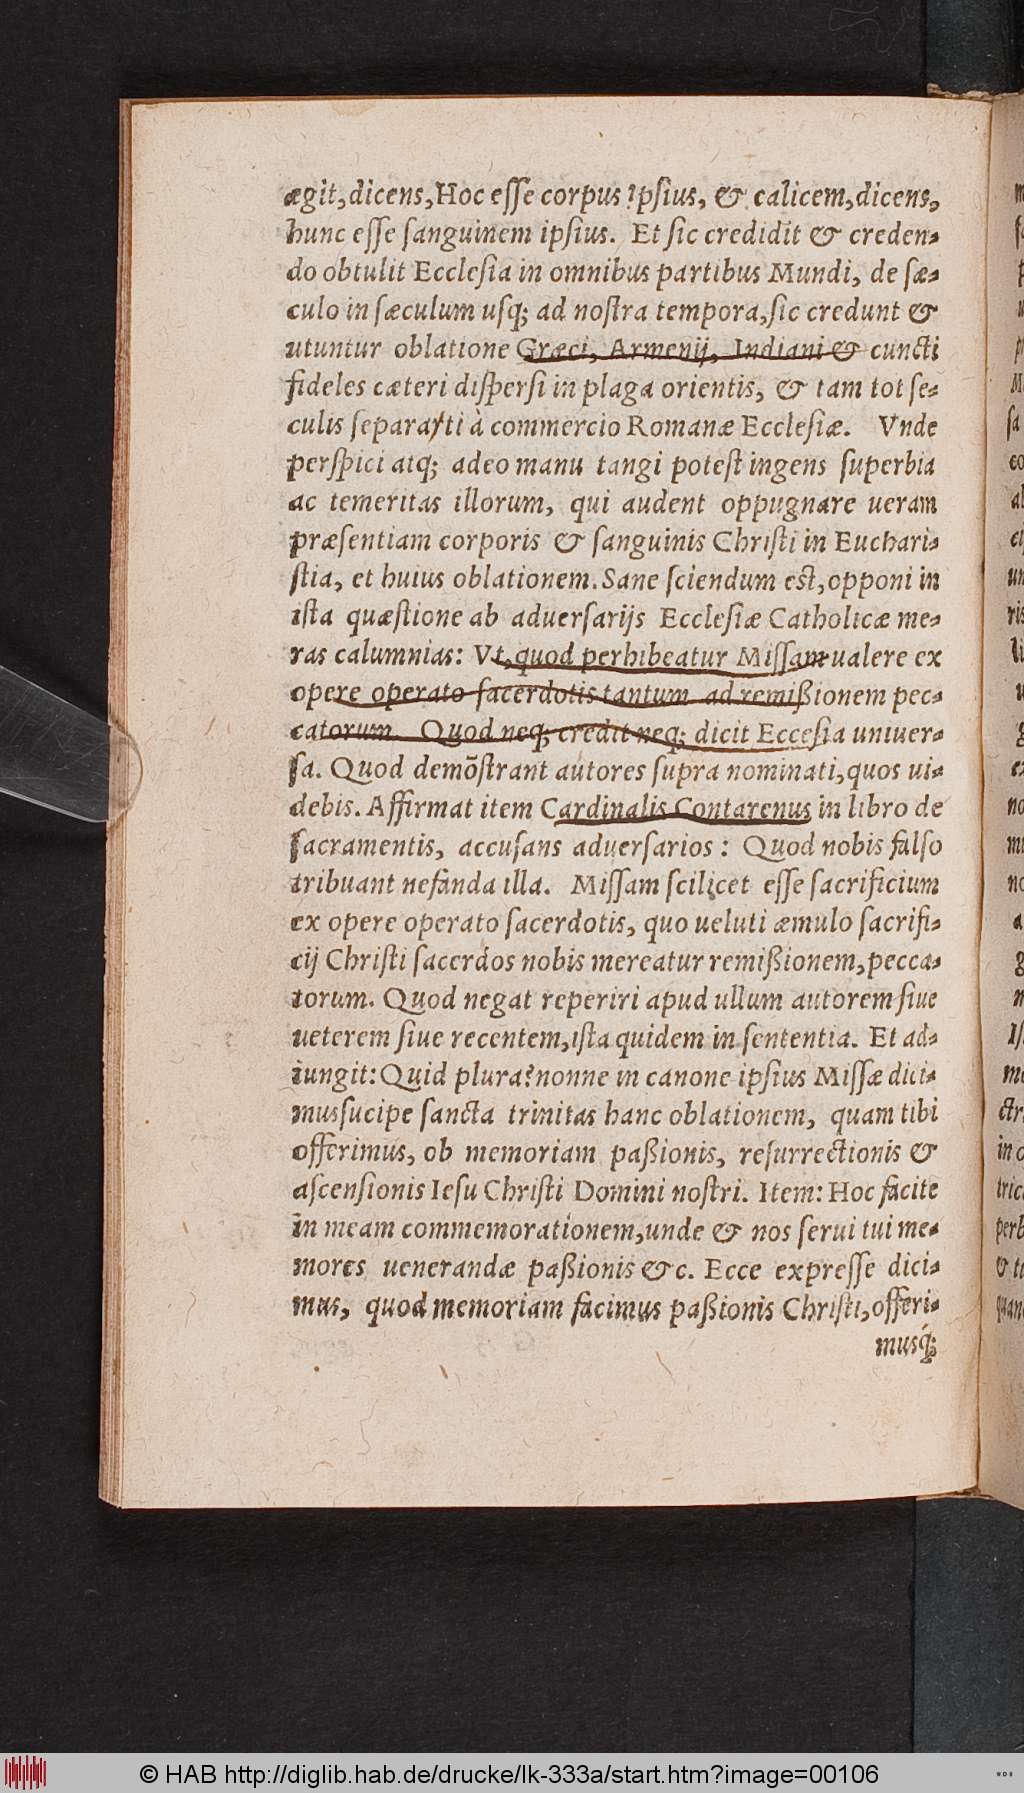 ægit, dicens, Hoc esse corpus ipsius, & calicem, dicens,
hunc esse sanguinem ipsius. Et sic credidit & creden-
do obtulit Ecclesia in omnibus partibus Mundi, de sæ-
culo in sæculum usq; ad nostra tempora, sic credunt &
utuntur oblatione Græci, Armenij, Indiani & cuncti
fideles cæteri dispersi in plaga orientis, & tam tot se-
culis separati à commercio Romanæ Ecclesiæ. Vnde
perspici atq; adeo manu tangi potest ingens superbia
ac temeritas illorum, qui audent oppugnare ueram
præsentiam corporis & sanguinis Christi in Euchari-
stia, et huius oblationem. Sane sciendum est, opponi in
ista quæstione ab aduersarijs Ecclesiæ Catholicæ me-
ras calumnias: Vt, quod perhibeatur Missam ualere ex
opere operato sacerdotis tantum ad remißionem pec-
catorum. Quod neq; credit neq; dicit Eccesia uniuer-
sa. Quod demõstrant autores supra nominati, quos ui-
debis. Affirmat item Cardinalis Contarenus in libro de
sacramentis, accusans aduersarios: Quod nobis falso
tribuant nefanda illa. Missam scilicet esse sacrificium
ex opere operato sacerdotis, quo ueluti æmulo sacrifi-
cij Christi sacerdos nobis mereatur remißionem, pecca-
torum. Quod negat reperiri apud ullum autorem siue
ueterem siue recentem, ista quidem in sententia. Et ad-
iungit: Quid plura? nonne in canone ipsius Missæ dici-
mus sucipe sancta trinitas hanc oblationem, quam tibi
offerimus, ob memoriam paßionis, resurrectionis &
ascensionis Iesu Christi Domini nostri. Item: Hoc facite
in meam commemorationem, unde & nos serui tui me-
mores uenerandæ paßionis &c. Ecce expresse dici-
mus, quod memoriam facimus paßionis Christi, offeri-
musq́;
© HAB http://diglib.hab.de/drucke/lk-333a/start.htm?image=00106